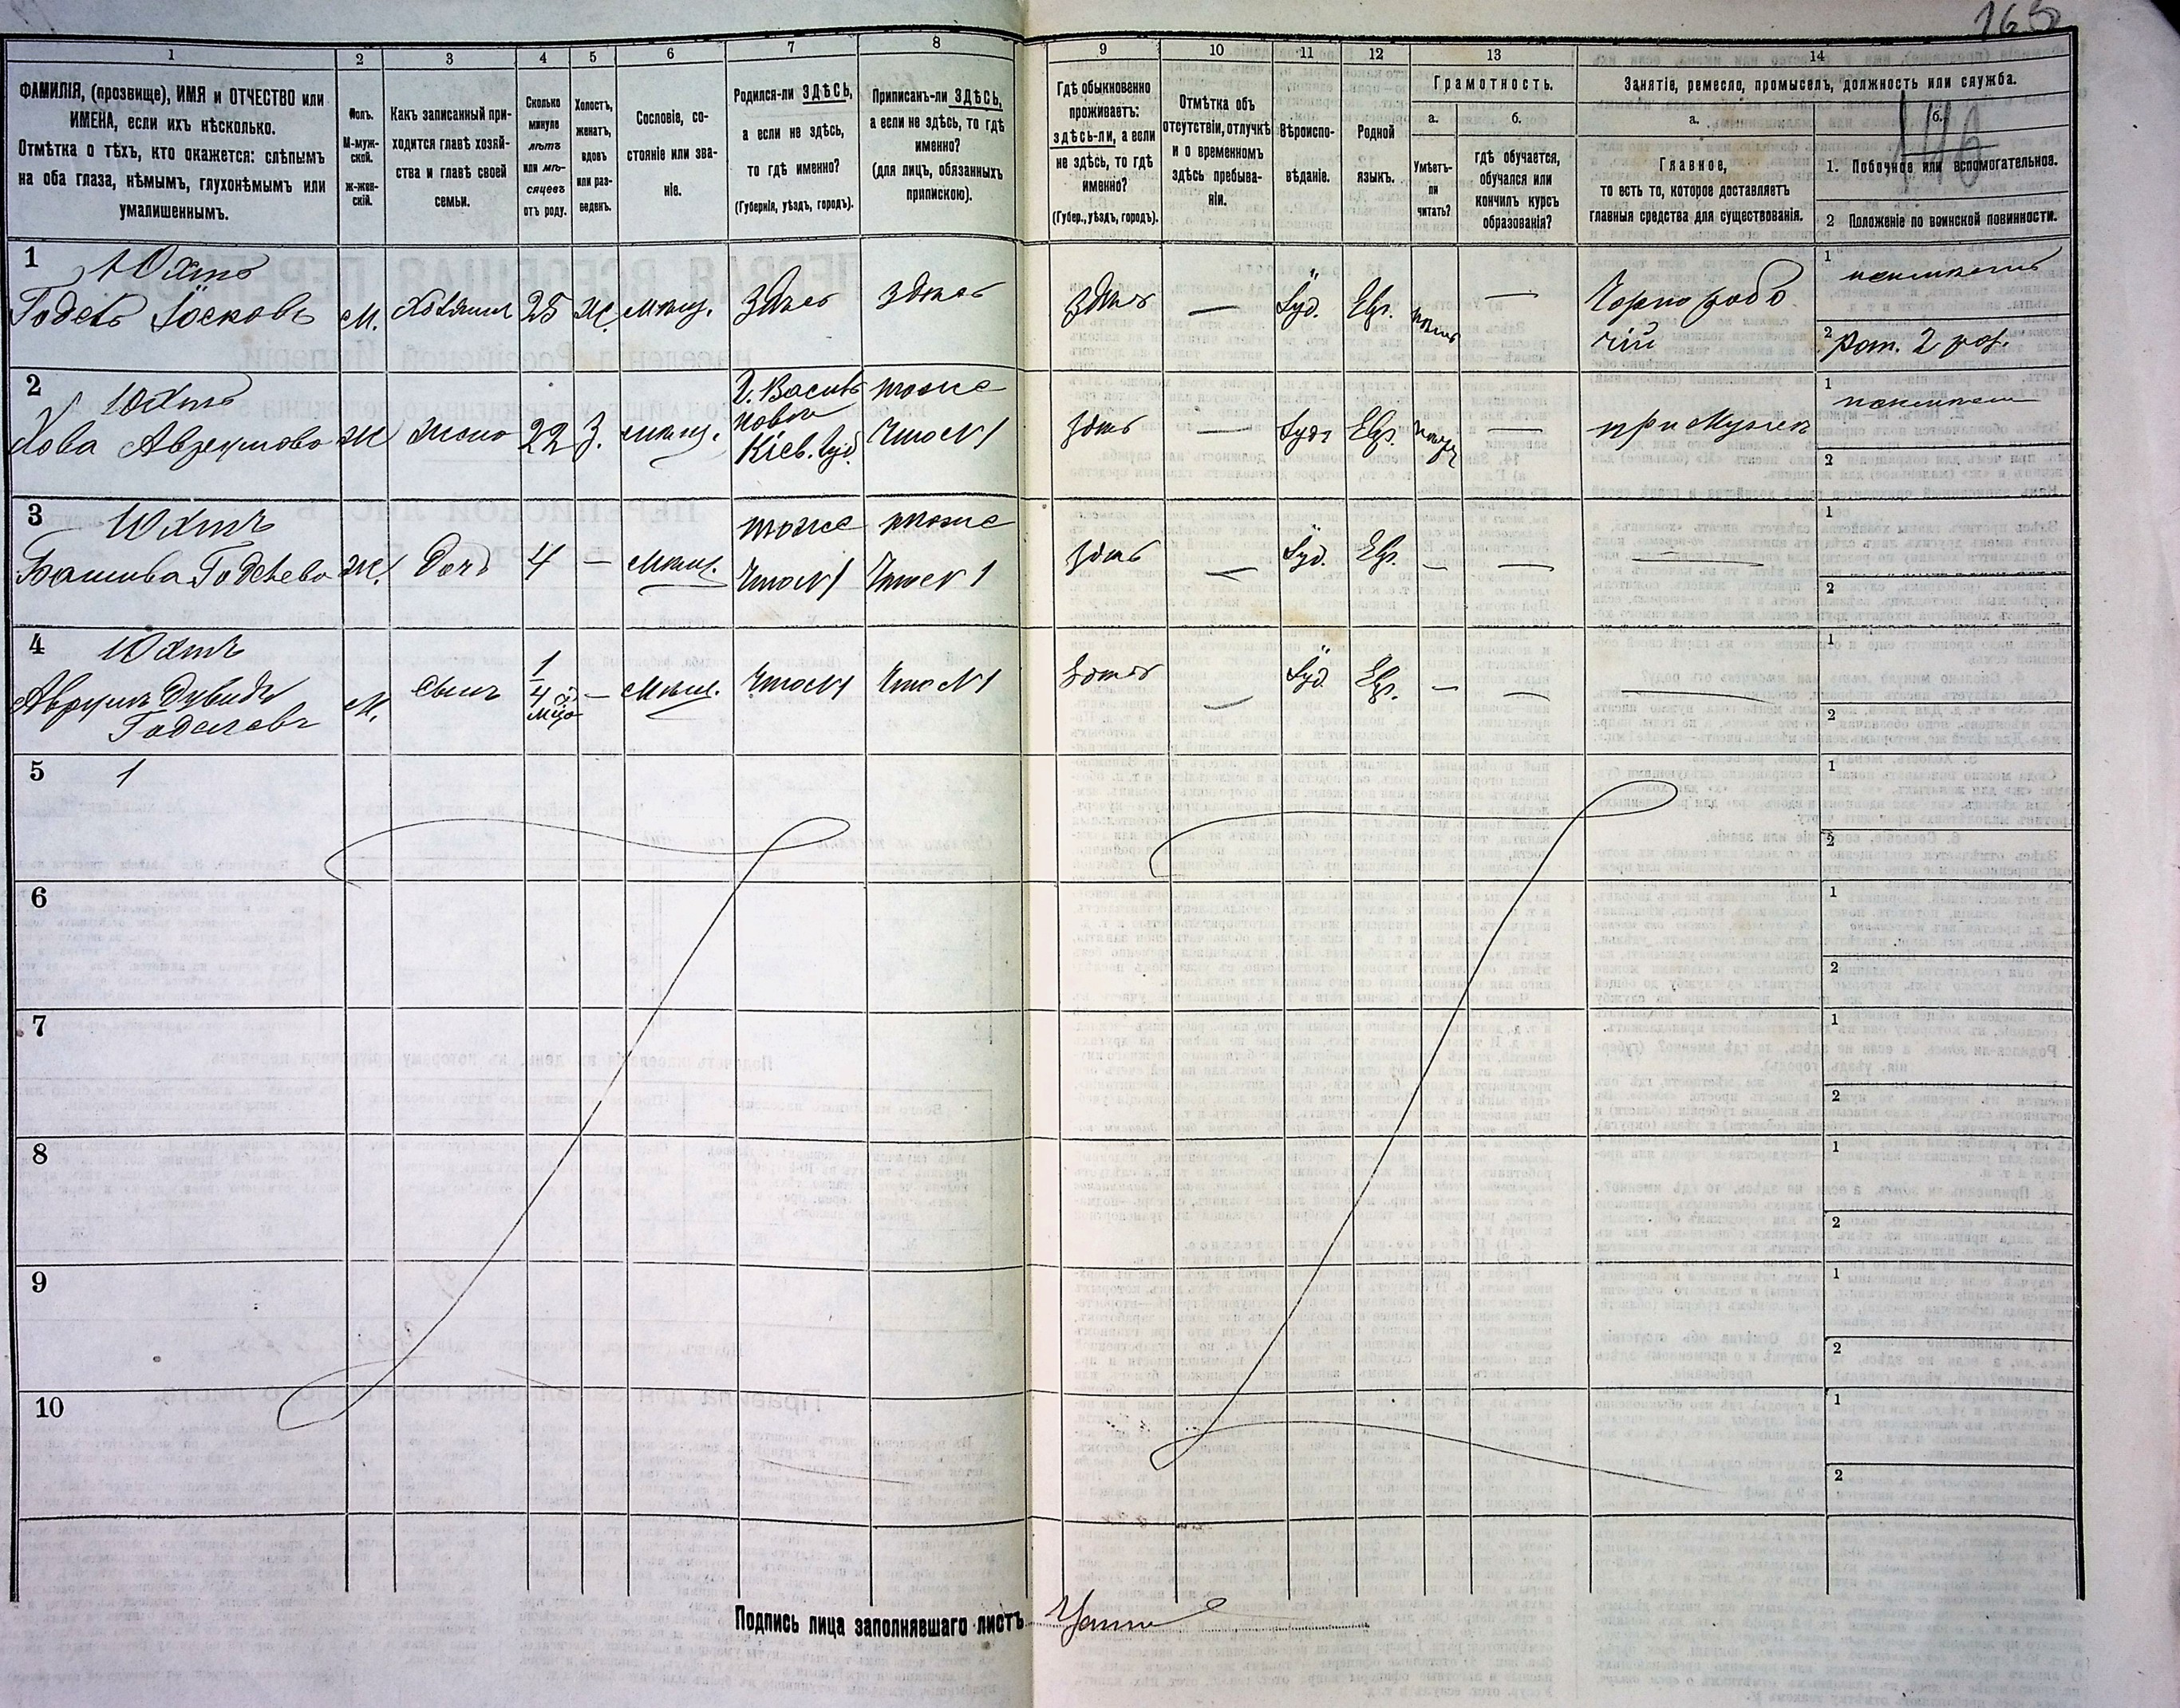 165
116
1 2 3 4 5 6 7 8 9 10 11 12 13 14
ФАМИЛІЯ, (прозвище), ИМЯ и ОТЧЕСТВО или
ИМЕНА, если ихъ нѣсколько.
Отмѣтка о тѣхъ, кто окажется: слѣпымъ
на оба глаза, нѣмымъ, глухонѣмымъ или
умалишеннымъ.
Полъ.
М-муж-
ской.
ж-жен-
скій.
Какъ записанный при-
ходится главѣ хозяй-
ства и главѣ своей
семьи.
Сколько
минуло
лѣтъ
или мѣ-
сяцевъ
отъ роду.
Холостъ,
женатъ,
вдовъ
или раз-
веденъ.
Сословіе, со-
стояніе или зва-
ніе.
Родился-ли ЗДѢСЬ,
а если не здѣсь,
то гдѣ именно?
(Губернія, уѣздъ, городъ).
Приписанъ-ли ЗДѢСЬ,
а если не здѣсь, то гдѣ
именно?
(для лицъ, обязанныхъ
припискою).
Гдѣ обыкновенно
проживаетъ:
здѣсь-ли, а если
не здѣсь, то гдѣ
именно?
(Губер., уѣздъ, городъ).
Отмѣтка объ
отсутствіи, отлучкѣ
и о временномъ
здѣсь пребыва-
ніи.
Вѣроиспо-
вѣданіе.
Родной
языкъ.
Грамотность.
а.
Умѣетъ-
ли
читать?
б.
гдѣ обучается,
обучался или
кончилъ курсъ
образованія?
Занятіе, ремесло, промыселъ, должность или служба.
а.
Главное,
то есть то, которое доставляетъ
главныя средства для существованія.
б.
1. Побочное или вспомогательное.
2 Положеніе по воинской повинности.
1
Юхтъ
Годель Іосковъ
М. Хозяинъ 25 Ж. Мѣщ. Здѣсь Здѣсь Здѣсь — Іуд. Евр. — Чорнорабо
чій
1
2 рат. 2 раз.
2
Юхтъ
Хова Аврумова
Ж Жена 22 З. Мѣщ.
г. Василь
ковъ
Кіев. губ.
тоже
что №1
здѣсь — Іуд. Евр. — при Мужѣ
1
2
3
Юхтъ
Башива Годелева
Ж. Дочь 4 — Мѣщ.
тоже
что №1
тоже
что № 1
здѣсь — Іуд. Евр. — — —
1
2
4
Юхтъ
Аврумъ Дувидъ
Годелевъ
М. Сынъ
1
4
мѣс. — Мѣщ. что №1 что №1 здѣсь — Іуд. Евр. — — —
1
2
5 1
1
2
6
1
2
7
1
2
8
1
2
9
1
2
10
1
2
Подпись лица заполнявшаго листъ